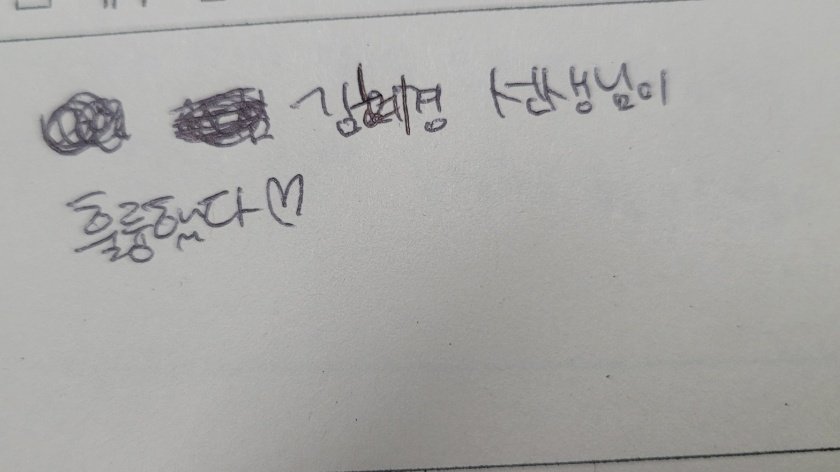 김혜경 선생님이
훌륭했다♡